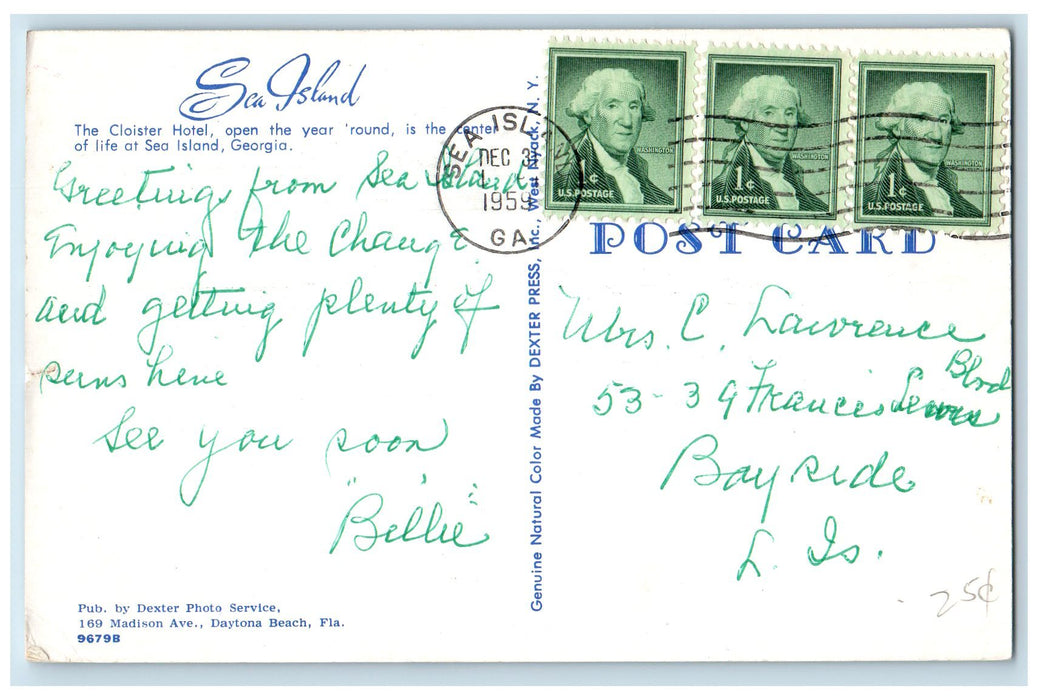 Sea Island
The Cloister Hotel, open the year 'round, is the center
of life at Sea Island, Georgia.
Greetings from Sea Island
Enjoying the Change
and getting plenty of
sunshine
See you soon
"Billie"
Pub. by Dexter Photo Service,
169 Madison Ave., Daytona Beach, Fla.
9679B
Genuine Natural Color Made By DEXTER PRESS, Inc., West Nyack, N. Y.
SEA ISLAND
DEC 3
1959
GA.
WASHINGTON
1¢
U.S. POSTAGE
WASHINGTON
1¢
U.S. POSTAGE
WASHINGTON
1¢
U.S. POSTAGE
POST CARD
Mrs. C. Lawrence
53-39 Francis Lewis Blvd
Bayside
L. Is.
25¢